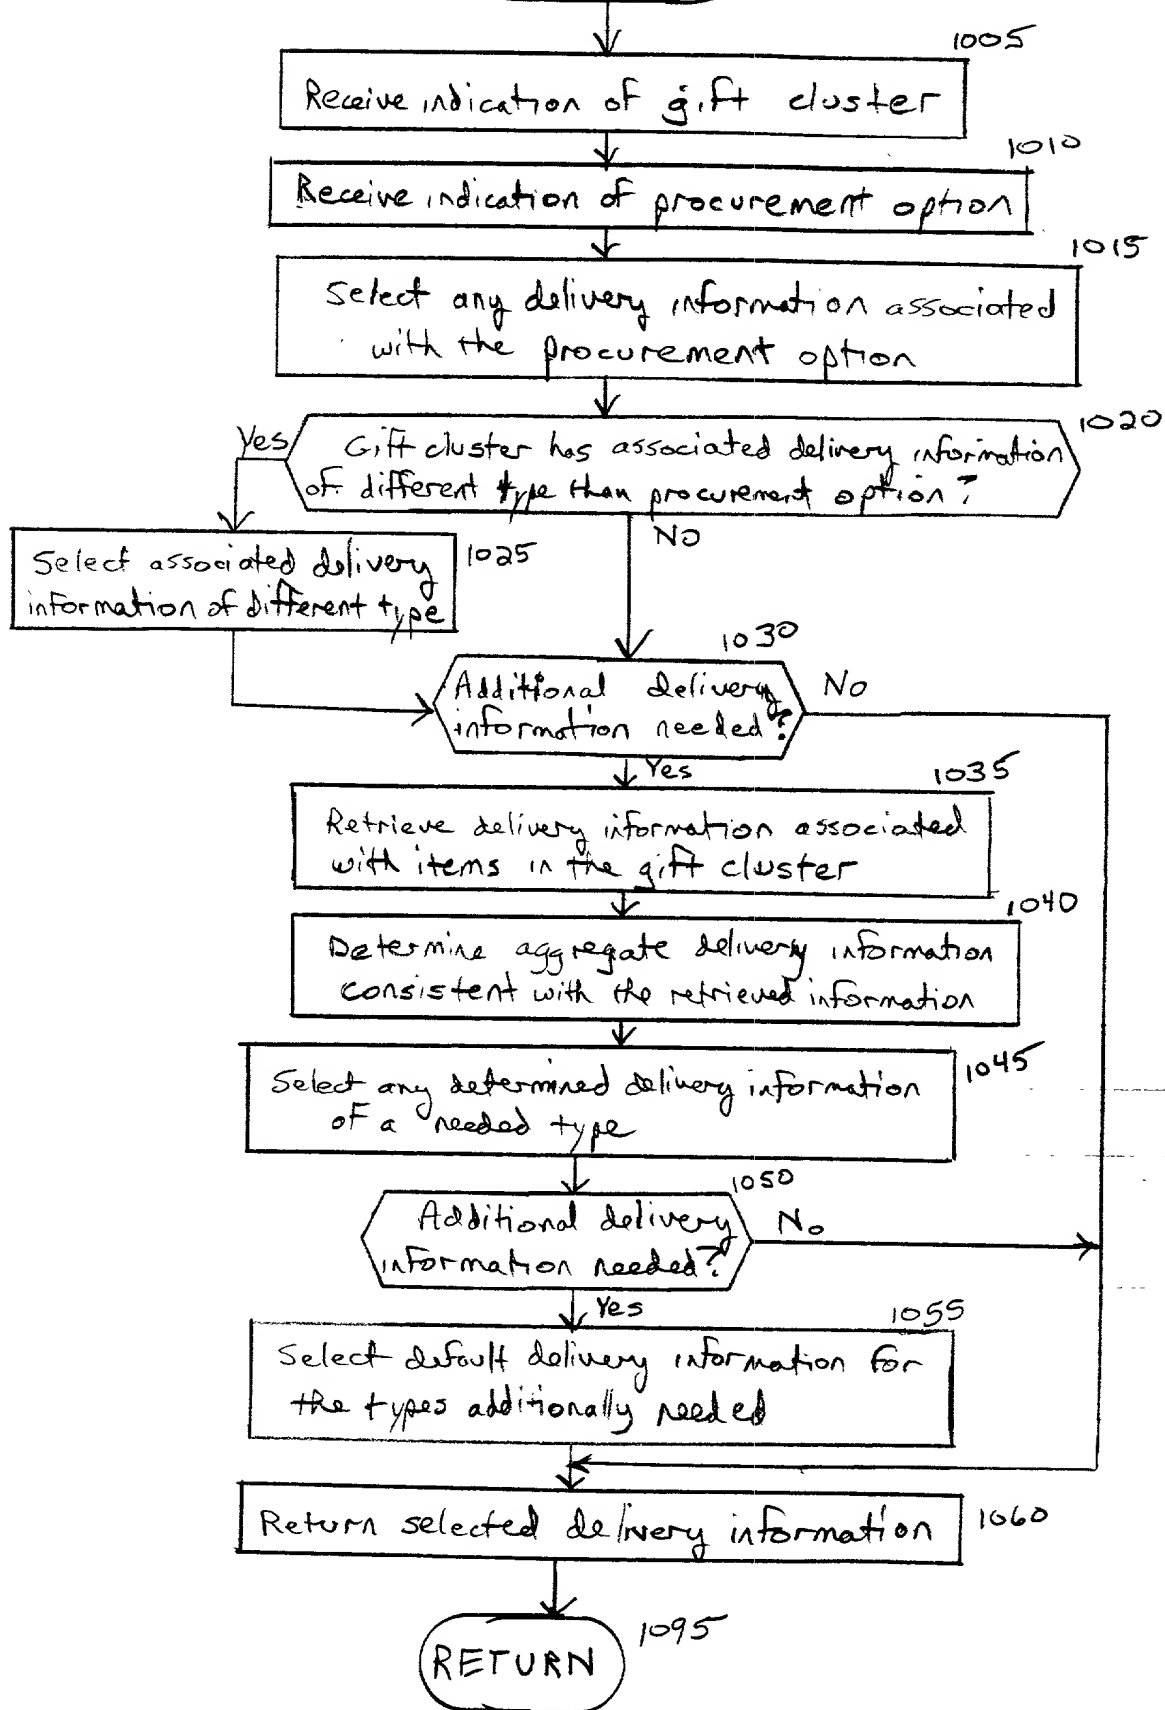 1005
Receive indication of gift cluster
1010
Receive indication of procurement option
1015
Select any delivery information associated
with the procurement option
1020
Yes
Gift cluster has associated delivery information
of different type than procurement option?
No
Select associated delivery
information of different type
1025
1030
Additional delivery
information needed?
No
Yes
1035
Retrieve delivery information associated
with items in the gift cluster
1040
Determine aggregate delivery information
consistent with the retrieved information
1045
Select any determined delivery information
of a needed type
1050
Additional delivery
information needed?
No
Yes
1055
Select default delivery information for
the types additionally needed
Return selected delivery information
1060
RETURN
1095